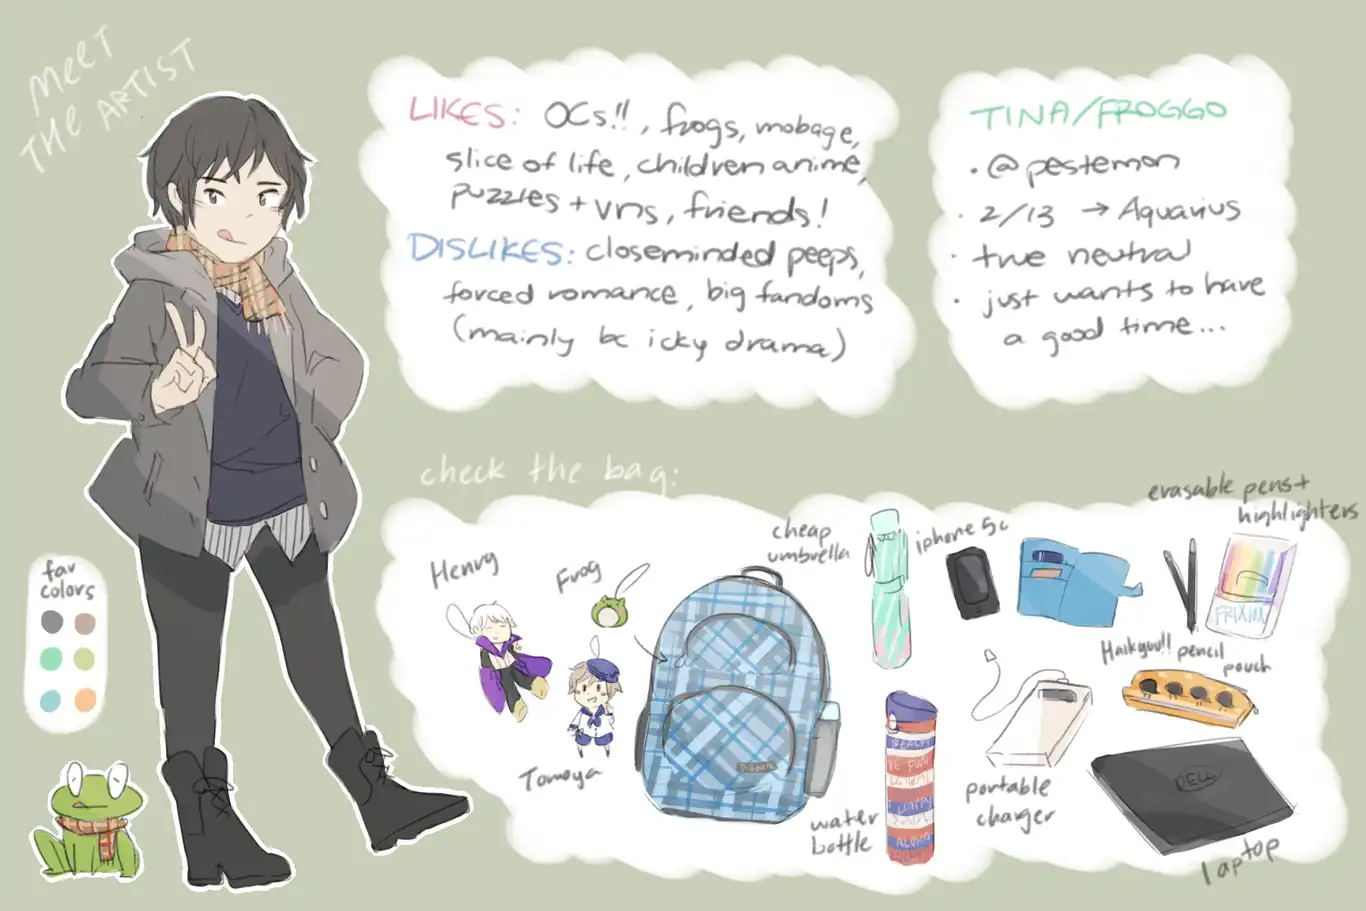 MEET
THE ARTIST
LIKES: OCs!!, frogs, mobage,
slice of life, children anime,
puzzles + vns, friends!
DISLIKES: closeminded peeps,
forced romance, big fandoms
(mainly bc icky drama)
TINA/FROGGO
• @pestemon
• 2/13 → Aquarius
• true neutral
• just wants to have
a good time...
check the bag:
fav
colors
Henry
Frog
Tomoya
cheap
umbrella
iphone 5c
erasable pens +
highlighters
FRIXION
Haikyuu!! pencil
pouch
water
bottle
portable
charger
DELL
laptop